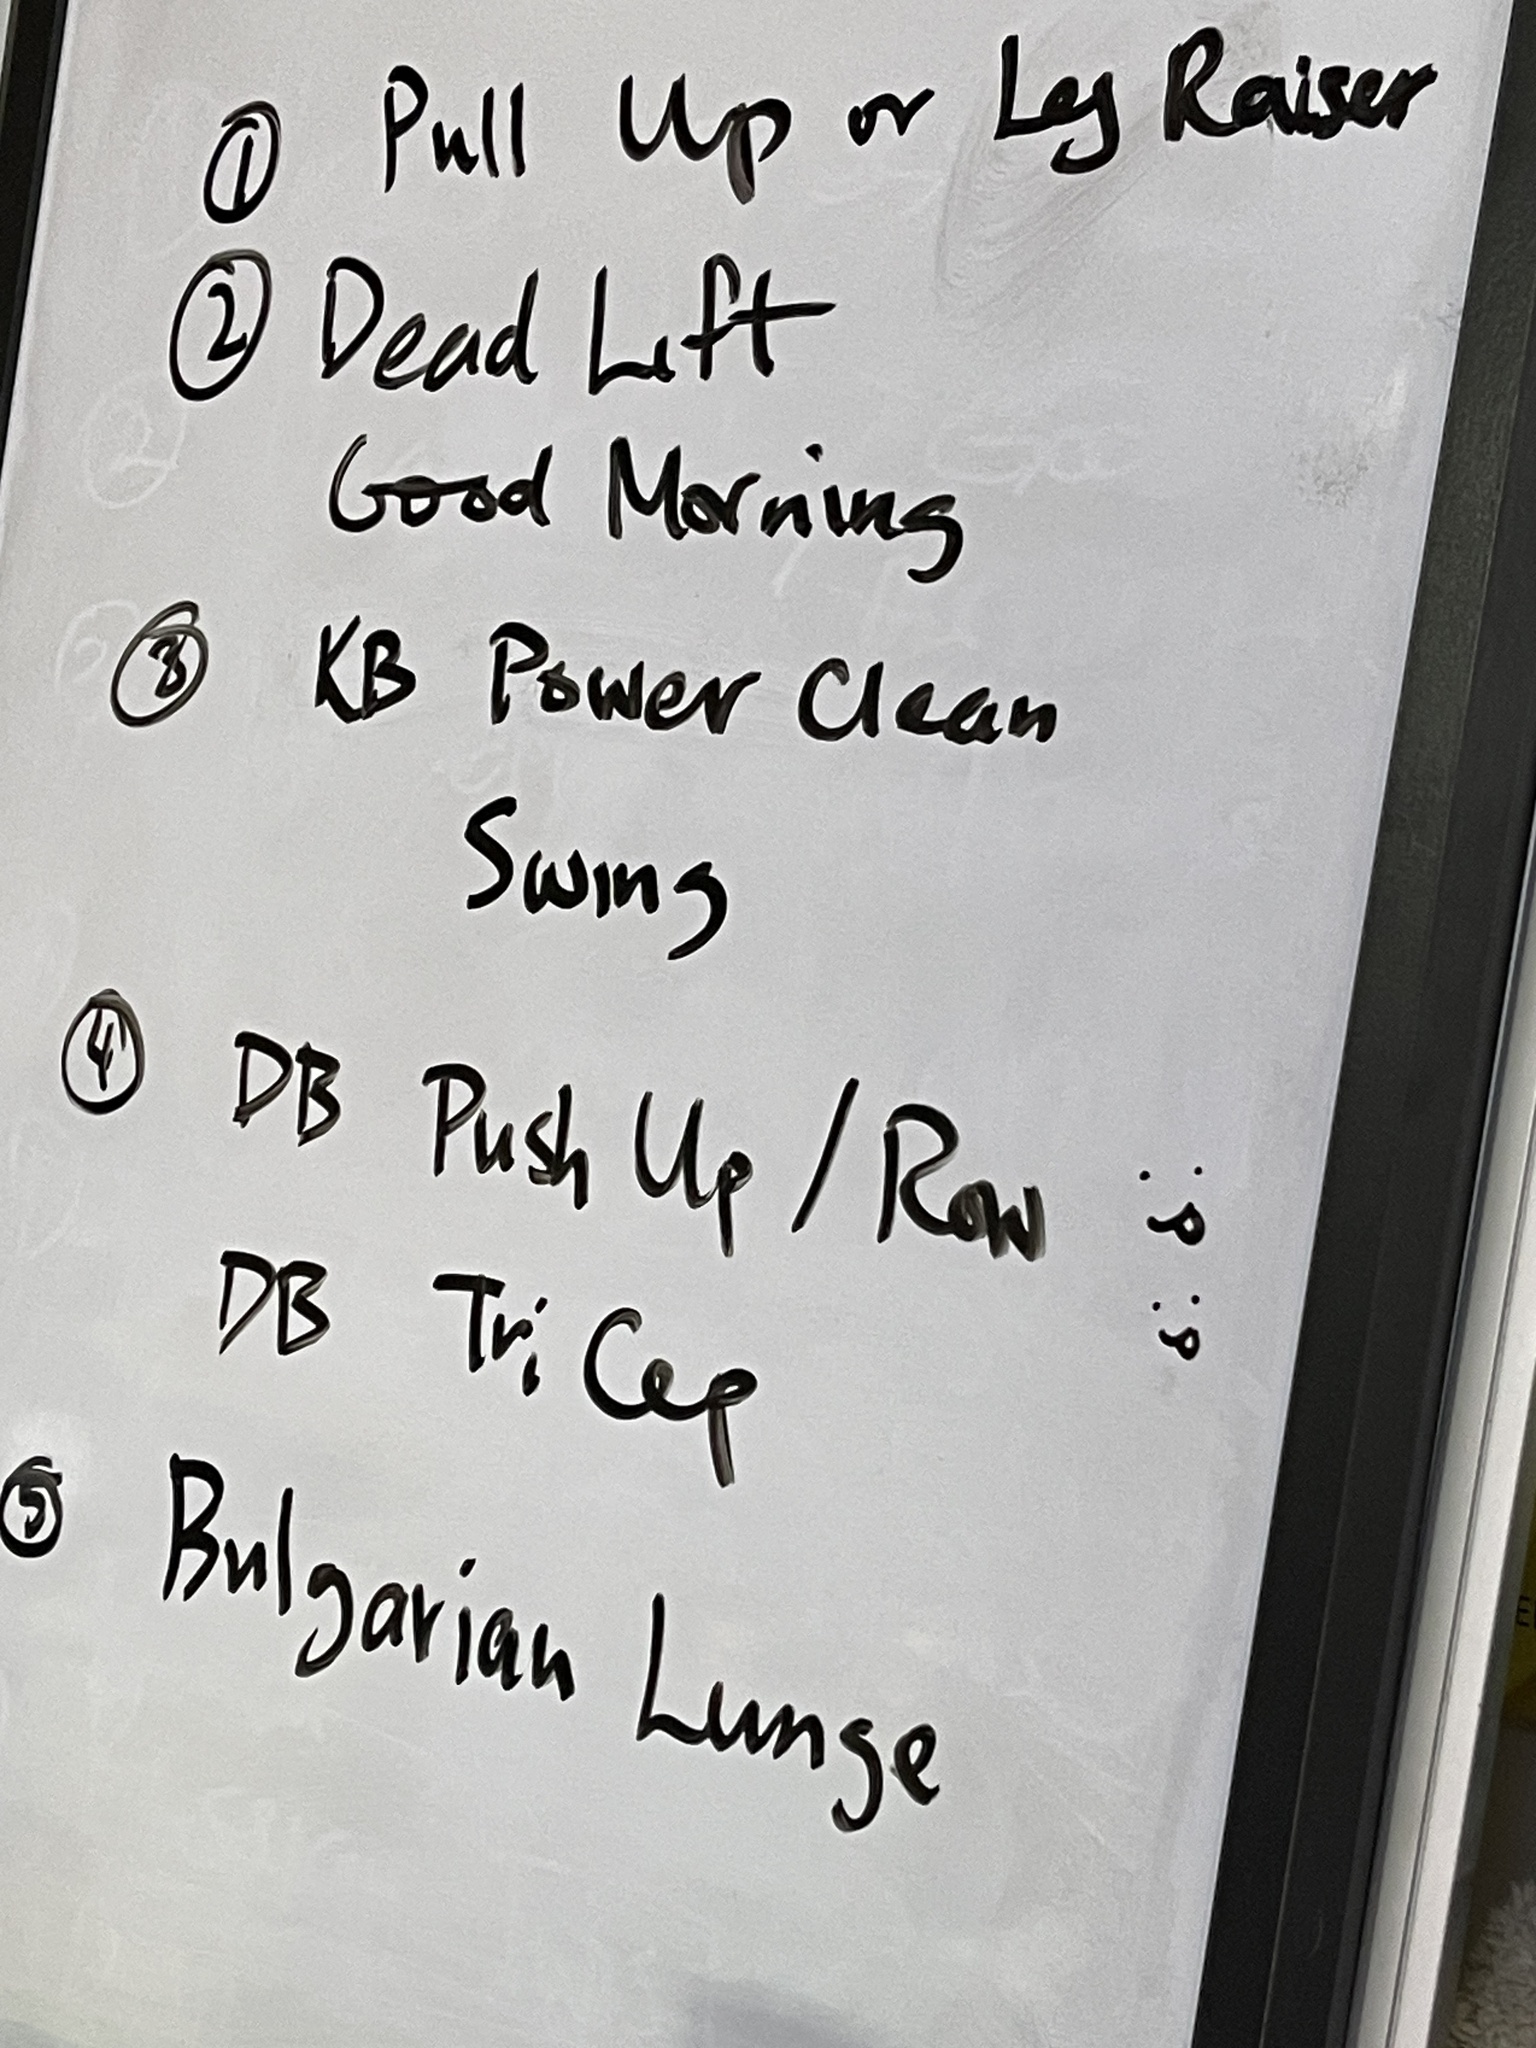 ① Pull Up or Leg Raiser
② Dead Lift
Good Morning
③ KB Power Clean
Swing
④ DB Push Up / Row
DB Tri Cep
⑤ Bulgarian Lunge